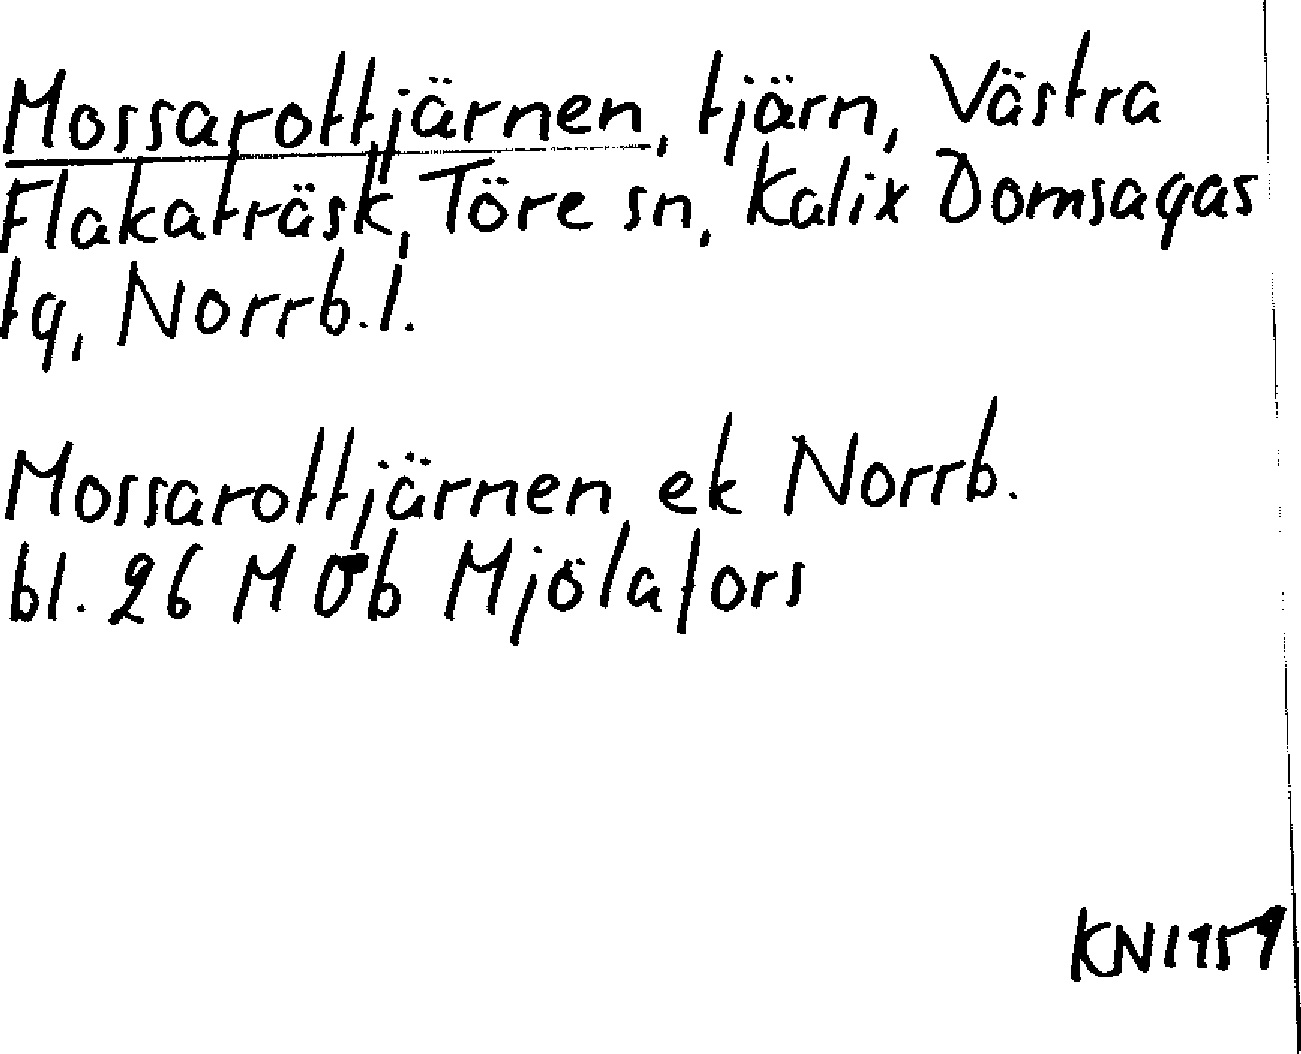 Mossarottjärnen, tjärn, Västra
Flakaträsk, Töre sn, Kalix Domsagas
tg, Norrb.l.
Mossarottjärnen ek Norrb.
bl. 26 M Öb Mjölafors
KN 1959